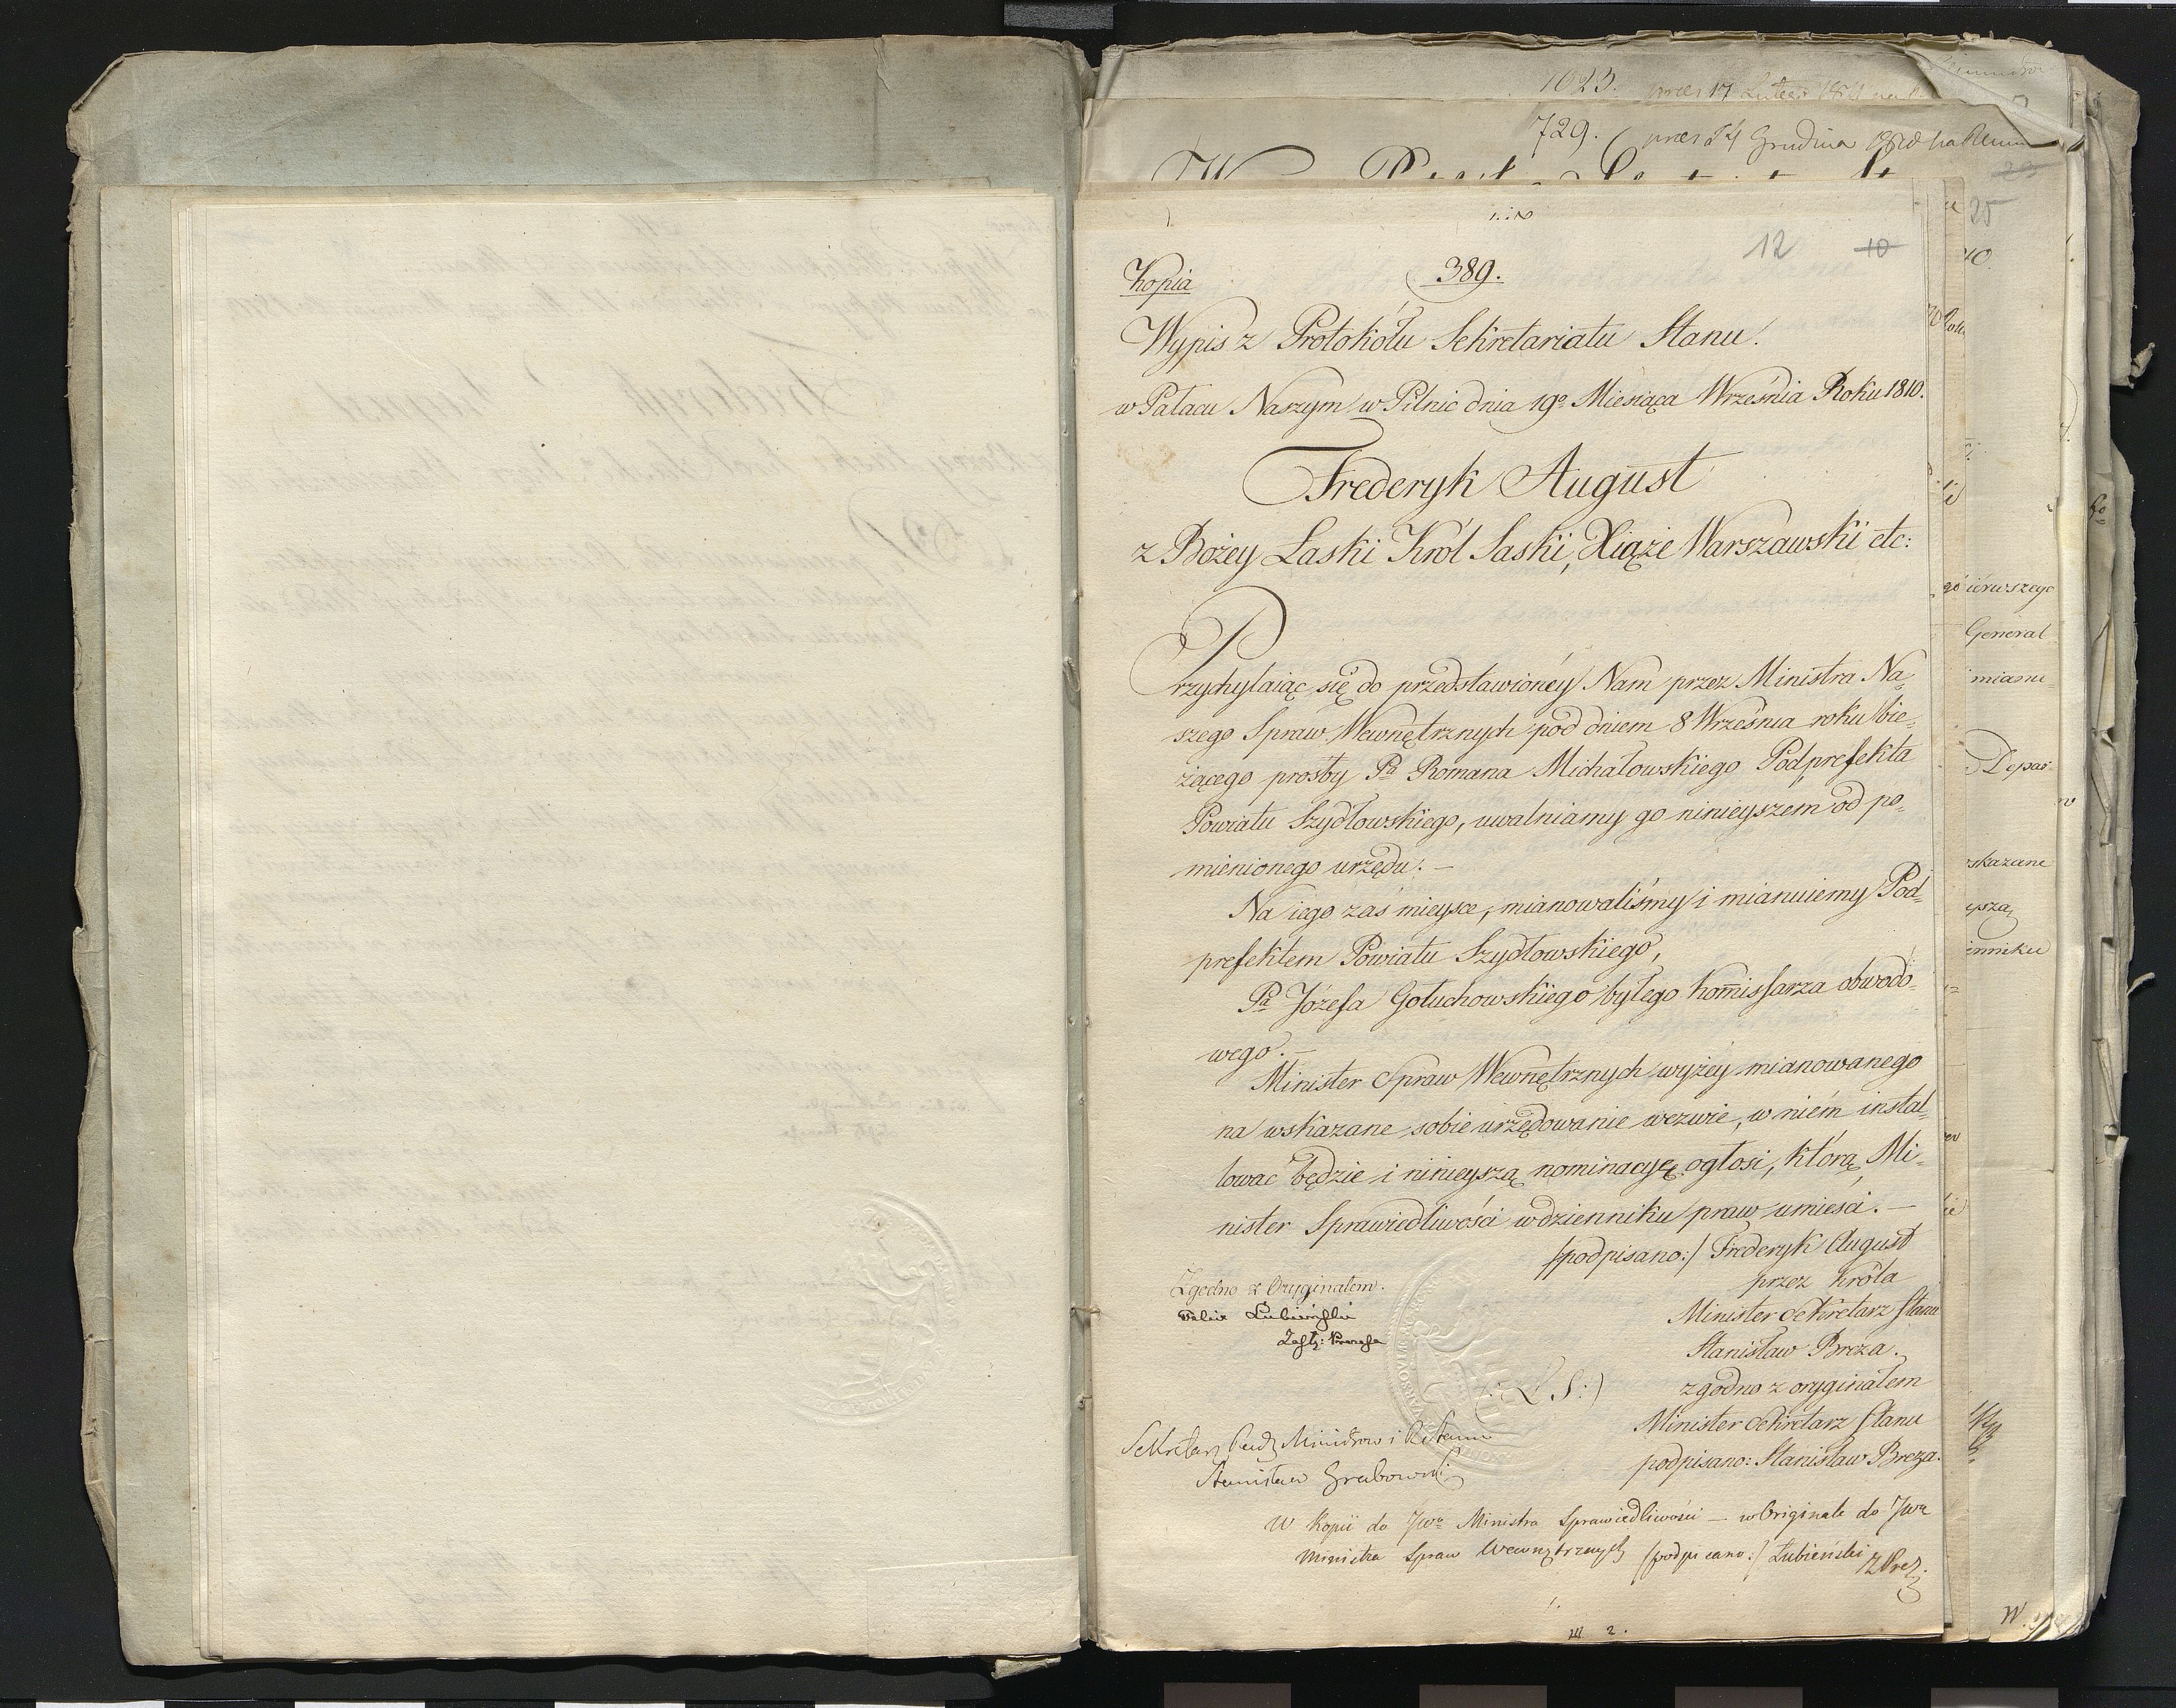 1023.
729.
12 10
25
Kopia
389.
Wypis z Protokółu Sekretariatu Stanu.
w Pałacu Naszym w Pilnic dnia 19º Miesiąca Września Roku 1810.
Frederyk August
z Bożey Laski Król Saski, Xiąże Warszawski etc:
Przychylaiąc się do przedstawionéy Nam przez Ministra Na=
szego Spraw Wewnętrznych pod dniem 8 Września roku bie=
żącego prosby Pa Romana Michałowskiego Podprefekta
Powiatu Szydłowskiego, uwalniamy go ninieyszem od po=
mienionego urzędu. –
Na iego zaś mieysce, mianowaliśmy i mianuiemy Pod=
prefektem Powiatu Szydłowskiego,
Pa Józefa Gołuchowskiego byłego Komissarza obwodo=
wego. –
Minister Spraw Wewnętrznych wyżéy mianowanego
na wskazane sobie urzędowanie wezwie, w niém instal=
lować będzie i ninieyszą nominacyę ogłosi, którą Mi=
nister Sprawiedliwości w dzienniku praw umieści. –
/podpisano:/ Frederyk August
przez Króla
Minister Sekretarz Stanu
Stanisław Breza.
zgodno z oryginałem
Minister Sekretarz Stanu
podpisano: Stanisław Breza.
Zgodno z Oryginałem.
Felix Łubieński
Zastę: Prezesa
(:L. S:)
Sekretarz Rady Ministrów i R. Stanu
Stanisław Grabowski
W Kopii do JWo Ministra Sprawiedliwości – w Originale do JWo
Ministra Spraw Wewnętrznych /podpisano:/ Łubieński ZPrez.